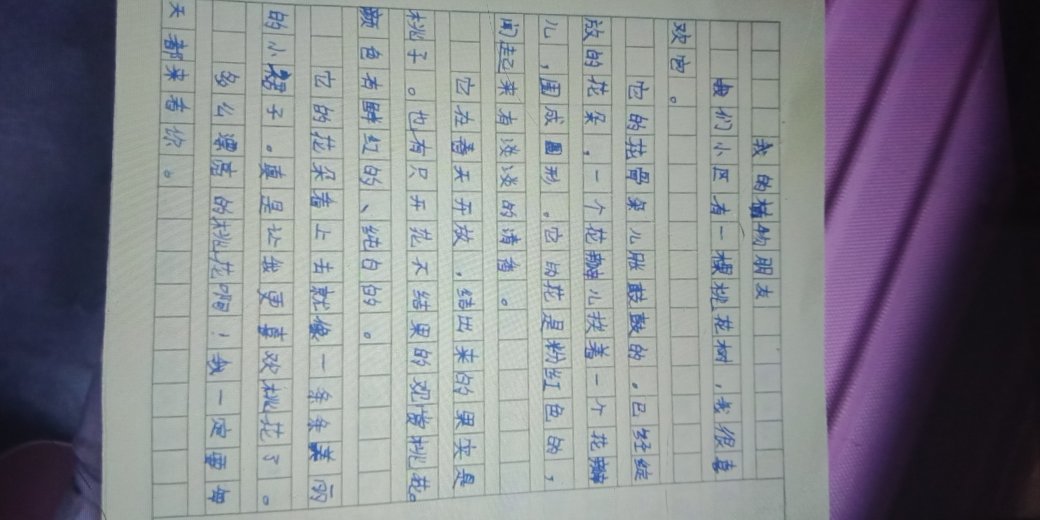 我的植物朋友
我们小区有一棵桃花树,我很喜
欢它。
它的花骨朵儿胀鼓鼓的。已经绽
放的花朵,一个花瓣儿挨着一个花瓣
儿,围成圆形。它的花是粉红色的,
闻起来有淡淡的清香。
它在春天开放,结出来的果实是
桃子。也有只开花不结果的观赏桃花。
颜色有鲜红的、纯白的。
它的花朵看上去就像一条条美丽
的小裙子。真是让我更喜欢桃花了。
多么漂亮的桃花啊!我一定要每
天都来看你。